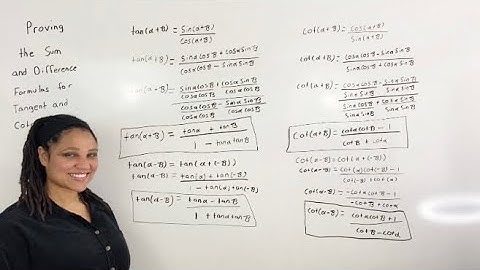 Proving
the Sum
and Difference
Formulas for
Tangent and
tan(α+B) = sin(α+B)
cos(α+B)
tan(α+B) = sinα cosB + cosα sinB
cosα cosB − sinα sinB
sinα cosB + cosα sinB
cosα cosB cosα cosB
cosα cosB − sinα sinB
cosα cosB cosα cosB
tan(α+B) = tanα + tanB
1 − tanα tanB
tan(α−B) = tan(α+(−B))
tan(α−B) = tan(α) + tan(−B)
1 − tan(α) tan(−B)
tan(α−B) = tanα − tanB
1 + tanα tanB
cot(α+B) = cos(α+B)
sin(α+B)
cot(α+B) = cosα cosB − sinα sinB
sinα cosB + cosα sinB
cot(α+B) = cosα cosB − sinα sinB
sinα sinB sinα sinB
sinα cosB + cosα sinB
sinα sinB sinα sinB
cot(α+B) = cotα cotB − 1
cotB + cotα
cot(α−B) = cot(α+(−B))
cot(α−B) = cot(α) cot(−B) − 1
cot(−B) + cot(α)
cot(α−B) = −cotα cotB − 1
−cotB + cotα
cot(α−B) = cotα cotB + 1
cotB − cotα